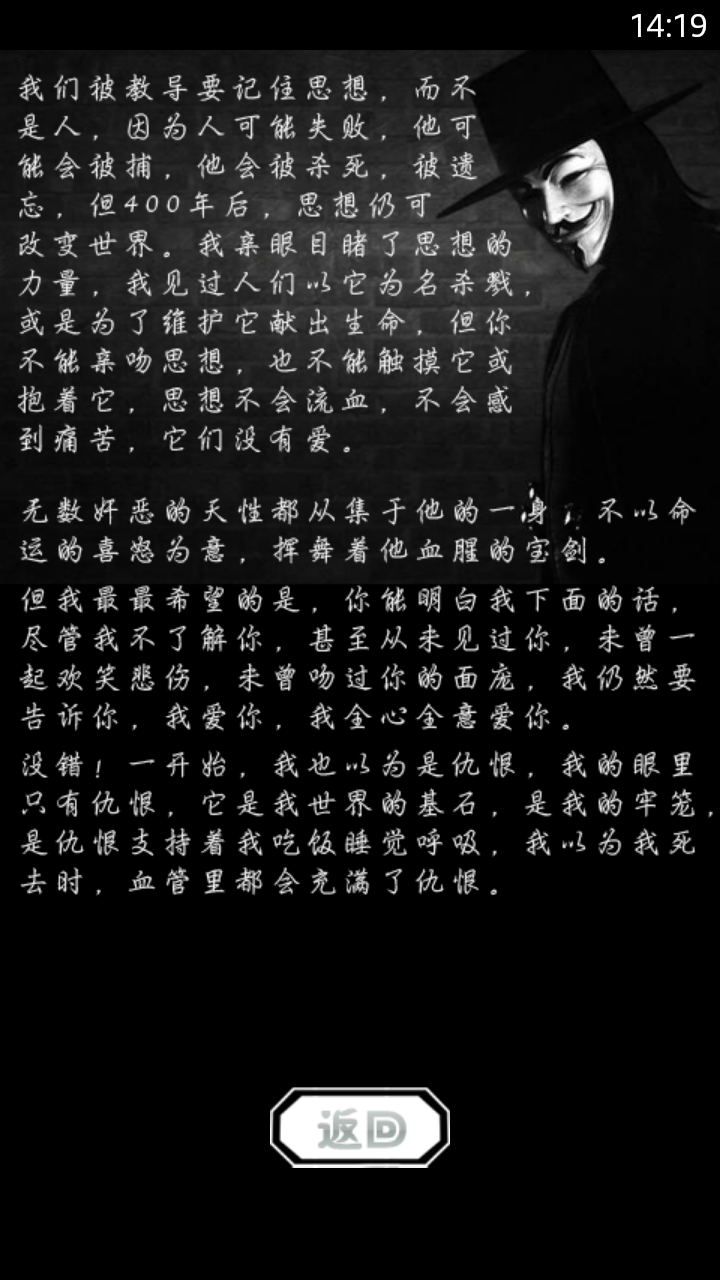 14:19
我们被教导要记住思想，而不
是人，因为人可能失败，他可
能会被捕，他会被杀死，被遗
忘，但400年后，思想仍可
改变世界。我亲眼目睹了思想的
力量，我见过人们以它为名杀戮，
或是为了维护它献出生命，但你
不能亲吻思想，也不能触摸它或
抱着它，思想不会流血，不会感
到痛苦，它们没有爱。
无数奸恶的天性都从集于他的一身，不以命
运的喜怒为意，挥舞着他血腥的宝剑。
但我最最希望的是，你能明白我下面的话，
尽管我不了解你，甚至从未见过你，未曾一
起欢笑悲伤，未曾吻过你的面庞，我仍然要
告诉你，我爱你，我全心全意爱你。
没错！一开始，我也以为是仇恨，我的眼里
只有仇恨，它是我世界的基石，是我的牢笼，
是仇恨支持着我吃饭睡觉呼吸，我以为我死
去时，血管里都会充满了仇恨。
返回